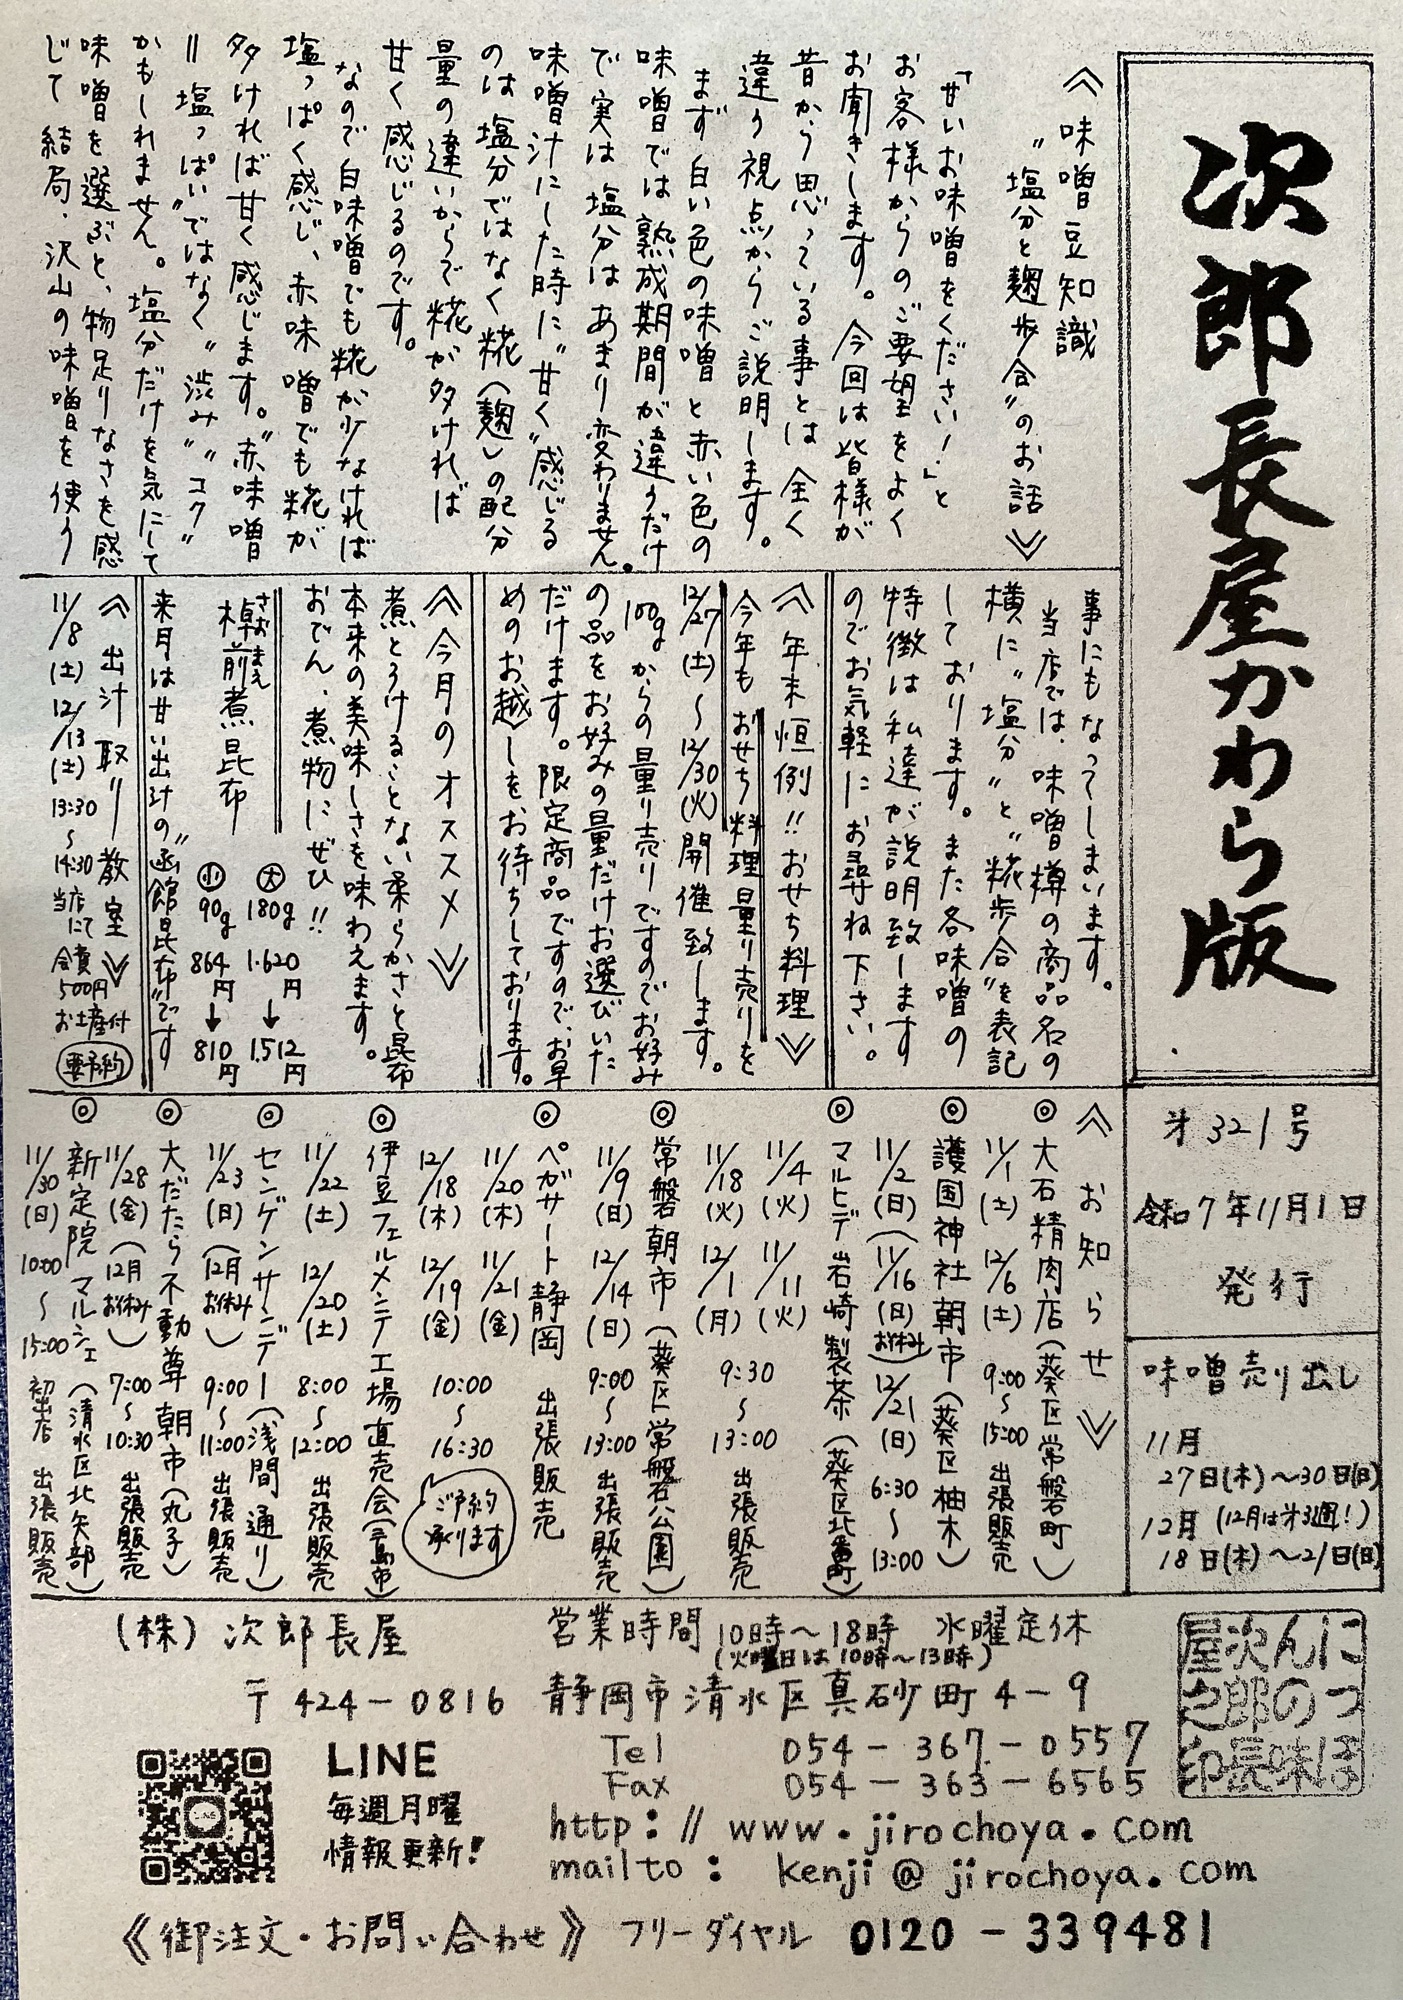 次郎長屋かわら版
オ321号
令和7年11月1日
発行
味噌売り出し
11月
27日(木)〜30日(日)
12月 (12月はオ3週!)
18日(木)〜21日(日)
《味噌豆知識
〝塩分と麹歩合〟のお話》
「甘いお味噌をください!」と
お客様からのご要望をよく
お聞きします。今回は皆様が
昔から思っている事とは全く
違う視点からご説明します。
まず白い色の味噌と赤い色の
味噌では熟成期間が違うだけ
で実は塩分はあまり変わりません。
味噌汁にした時に〝甘く〟感じる
のは塩分ではなく糀(麹)の配分
量の違いからで糀が多ければ
甘く感じるのです。
なので白味噌でも糀が少なければ
塩っぱく感じ、赤味噌でも糀が
多ければ甘く感じます。〝赤味噌
=塩っぱい〟ではなく〝渋み〟〝コク〟
かもしれません。塩分だけを気にして
味噌を選ぶと、物足りなさを感
じて結局、沢山の味噌を使う
事にもなってしまいます。
当店では、味噌樽の商品名の
横に〝塩分〟と〝糀歩合〟を表記
しております。また各味噌の
特徴は私達が説明致します
のでお気軽にお尋ね下さい。
《年末恒例!!おせち料理》
今年もおせち料理量り売りを
12/27(土)〜12/30(火)開催致します。
100gからの量り売りですのでお好み
の品をお好みの量だけお選びいた
だけます。限定商品ですので、お早
めのお越しをお待ちしております。
《今月のオススメ》
煮とろけることない柔らかさと昆布
本来の美味しさを味わえます。
おでん、煮物にぜひ!!
さおまえ
棹前煮昆布
大 180g 1.620円→1.512円
小 90g 864円→810円
来月は甘い出汁の〝函館昆布〟です
《出汁取り教室》
11/8(土) 12/13(土) 13:30〜14:30 当店にて 会費500円 お土産付 要予約
《お知らせ》
◎大石精肉店(葵区常磐町)
11/1(土) 12/6(土) 9:00〜15:00 出張販売
◎護国神社朝市(葵区柚木)
11/2(日)(11/16(日)お休み) 12/21(日) 6:30〜13:00
◎マルヒデ岩崎製茶(葵区北番町)
11/4(火) 11/11(火)
11/18(火) 12/1(月) 9:30〜13:00 出張販売
◎常磐朝市(葵区常磐公園)
11/9(日) 12/14(日) 9:00〜13:00 出張販売
◎ペガサート静岡 出張販売
11/20(木) 11/21(金)
12/18(木) 12/19(金) 10:00〜16:30
ご予約承ります
◎伊豆フェルメンテ工場直売会(三島市)
11/22(土) 12/20(土) 8:00〜12:00 出張販売
◎センゲンサンデー(浅間通り)
11/23(日)(12月お休み) 9:00〜11:00 出張販売
◎大だたら不動尊朝市(丸子)
11/28(金)(12月お休み) 7:00〜10:30 出張販売
◎新定院マルシェ(清水区北矢部)
11/30(日) 10:00〜15:00 初出店 出張販売
(株)次郎長屋
営業時間 10時〜18時 水曜定休
(火曜日は10時〜13時)
〒424-0816 静岡市清水区真砂町4-9
Tel 054-367-0557
Fax 054-363-6565
http://www.jirochoya.com
mailto: kenji@jirochoya.com
LINE
毎週月曜
情報更新!
にっぽんの味次郎長屋之印
《御注文・お問い合わせ》フリーダイヤル 0120-339481